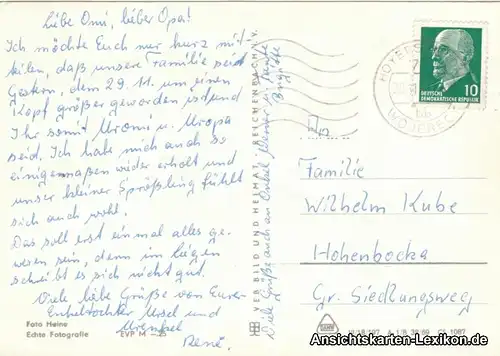 Liebe Omi, lieber Opa!
Ich möchte Euch nur kurz mit-
teilen, daß unsere Familie seit
Gestern, dem 29.11. um einen
Kopf größer geworden ist und
Ihr somit Uromi u. Uropa
seid. Ich habe mich auch so
einigermaßen wider erholt und
unser kleiner Sprößling fühlt
sich auch wohl.
Das soll erst einmal alles ge-
wesen sein, denn im liegen
schreibt es sich nicht gut.
Viele liebe Grüße von Eurer
Enkeltochter Ursel und
Urenkel
René.
Viele Grüße auch an Onkel Werner u. Tante
Brigitte
Foto Heine
Echte Fotografie EVP M
VEB BILD UND HEIMAT REICHENBACH I. V.
HOYERSWERDA
DEUTSCHE
DEMOKRATISCHE REPUBLIK 10
An
Familie
Wilhelm Kube
Hohenbocka
Gr. Siedlungsweg
Ansichtskarten-Lexikon.de